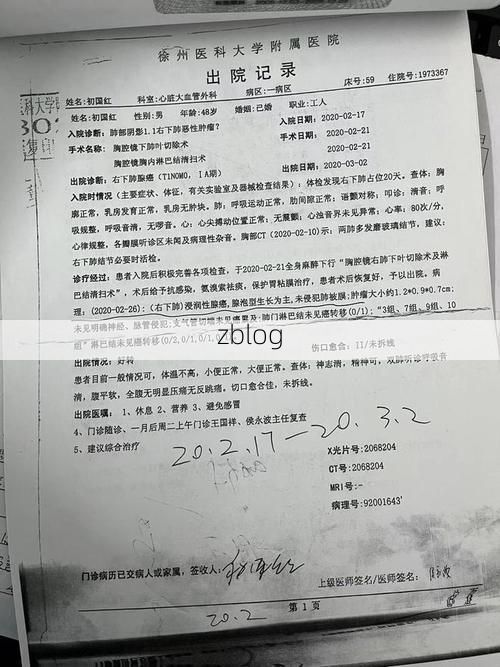 徐州医科大学附属医院
出院记录
姓名:初国红 科室:心脏大血管外科 病区:一病区 床号:59 住院号:1973367
姓名:初国红 性别:男 年龄:48岁 婚姻:已婚 职业:工人
入院诊断:肺部阴影1.1右下肺恶性肿瘤? 入院日期:2020-02-17
手术名称: 胸腔镜下肺叶切除术 手术日期:2020-02-21
胸腔镜胸内淋巴结清扫术 2020-02-21
出院诊断:右下肺腺癌(T1N0M0,ⅠA期) 出院日期:2020-03-02
入院时情况(主要症状、体征,有关实验室及器械检查结果):体检发现右下肺占位20天。查体:胸
廓正常,乳房发育正常,乳房无肿块。肺:呼吸运动正常,肋间隙正常;语颤对称;叩诊:清音;呼
吸规整,呼吸音清,无啰音。心:心尖搏动位置正常;无震颤;心浊音界未见异常;心率:80次/分,
心律规整,各瓣膜听诊区未闻及病理性杂音。胸部CT(2020-02-10)示:两肺多发磨玻璃结节,建议:
右下肺结节必要时活检。
诊疗经过:患者入院后积极完善各项检查,于2020-02-21全身麻醉下行“胸腔镜右肺下叶切除术及淋
巴结清扫术”,术后给予抗感染,氨溴索祛痰,保护胃粘膜治疗,患者术后恢复好,予以出院。病
理:(2020-02-26):(右下肺)浸润性腺癌,腺泡型生长为主,未侵犯肺被膜;肿瘤大小约1.2*0.9*0.7cm;
未见明确神经、脉管侵犯;支气管切端未见癌累及;肺门淋巴结未见癌转移(0/1);“3组、7组、9组、10
组”淋巴结未见癌转移(0/2,0/1,0/
zblog
伤口愈合:II/未拆线
出院情况:好转
患者目前一般情况可,体温不高,小便正常,大便正常。查体:神志清,精神可,双肺听诊呼吸音
清,腹平软,全腹无明显压痛无反跳痛。切口愈合佳,未拆线。
出院医嘱: 1、休息 2、营养 3、避免感冒
4、门诊随诊、一月后周二上午门诊王国祥、侯永波主任复查
5、建议综合治疗
20.2.17—20.3.2
X光片号:2068204
CT号:2068204
MRI号:-
病理号:92001643'
门诊病历已交病人或家属,签收人:
上级医师签名/医师签名:
第1页
20.2